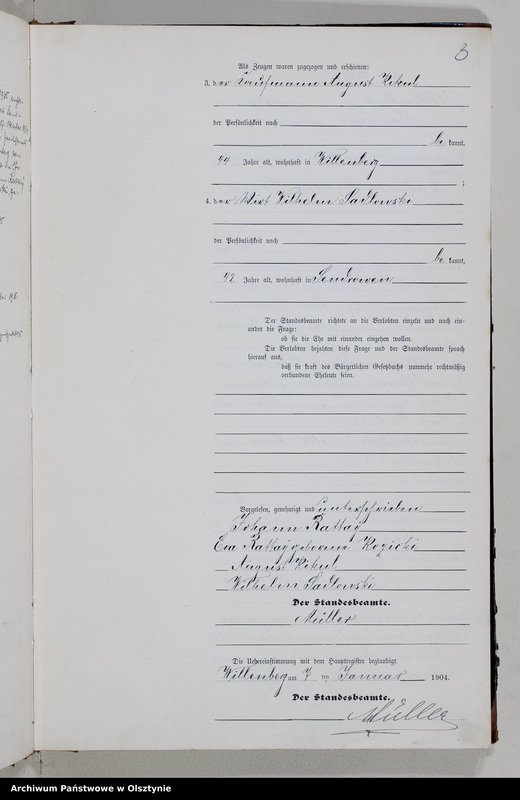 3
Als Zeugen waren zugezogen und erschienen:
3. der Kaufmann August Kikul
der Persönlichkeit nach
bekannt,
44 Jahre alt, wohnhaft in Willenberg
;
4. der Wirt Wilhelm Sadlowski
der Persönlichkeit nach
bekannt,
42 Jahre alt, wohnhaft in Sendrowen
Der Standesbeamte richtete an die Verlobten einzeln und nach ein-
ander die Frage:
ob sie die Ehe mit einander eingehen wollen.
Die Verlobten bejahten diese Frage und der Standesbeamte sprach
hierauf aus,
daß sie kraft des Bürgerlichen Gesetzbuchs nunmehr rechtmäßig
verbundene Eheleute seien.
Vorgelesen, genehmigt und unterschrieben
Johann Rattay
Eva Rattay geborene Kozicki
August Kikul
Wilhelm Sadlowski
Der Standesbeamte.
Müller
Die Uebereinstimmung mit dem Hauptregister beglaubigt.
Willenberg am 7 ten Januar 1904.
Der Standesbeamte.
Müller
Archiwum Państwowe w Olsztynie